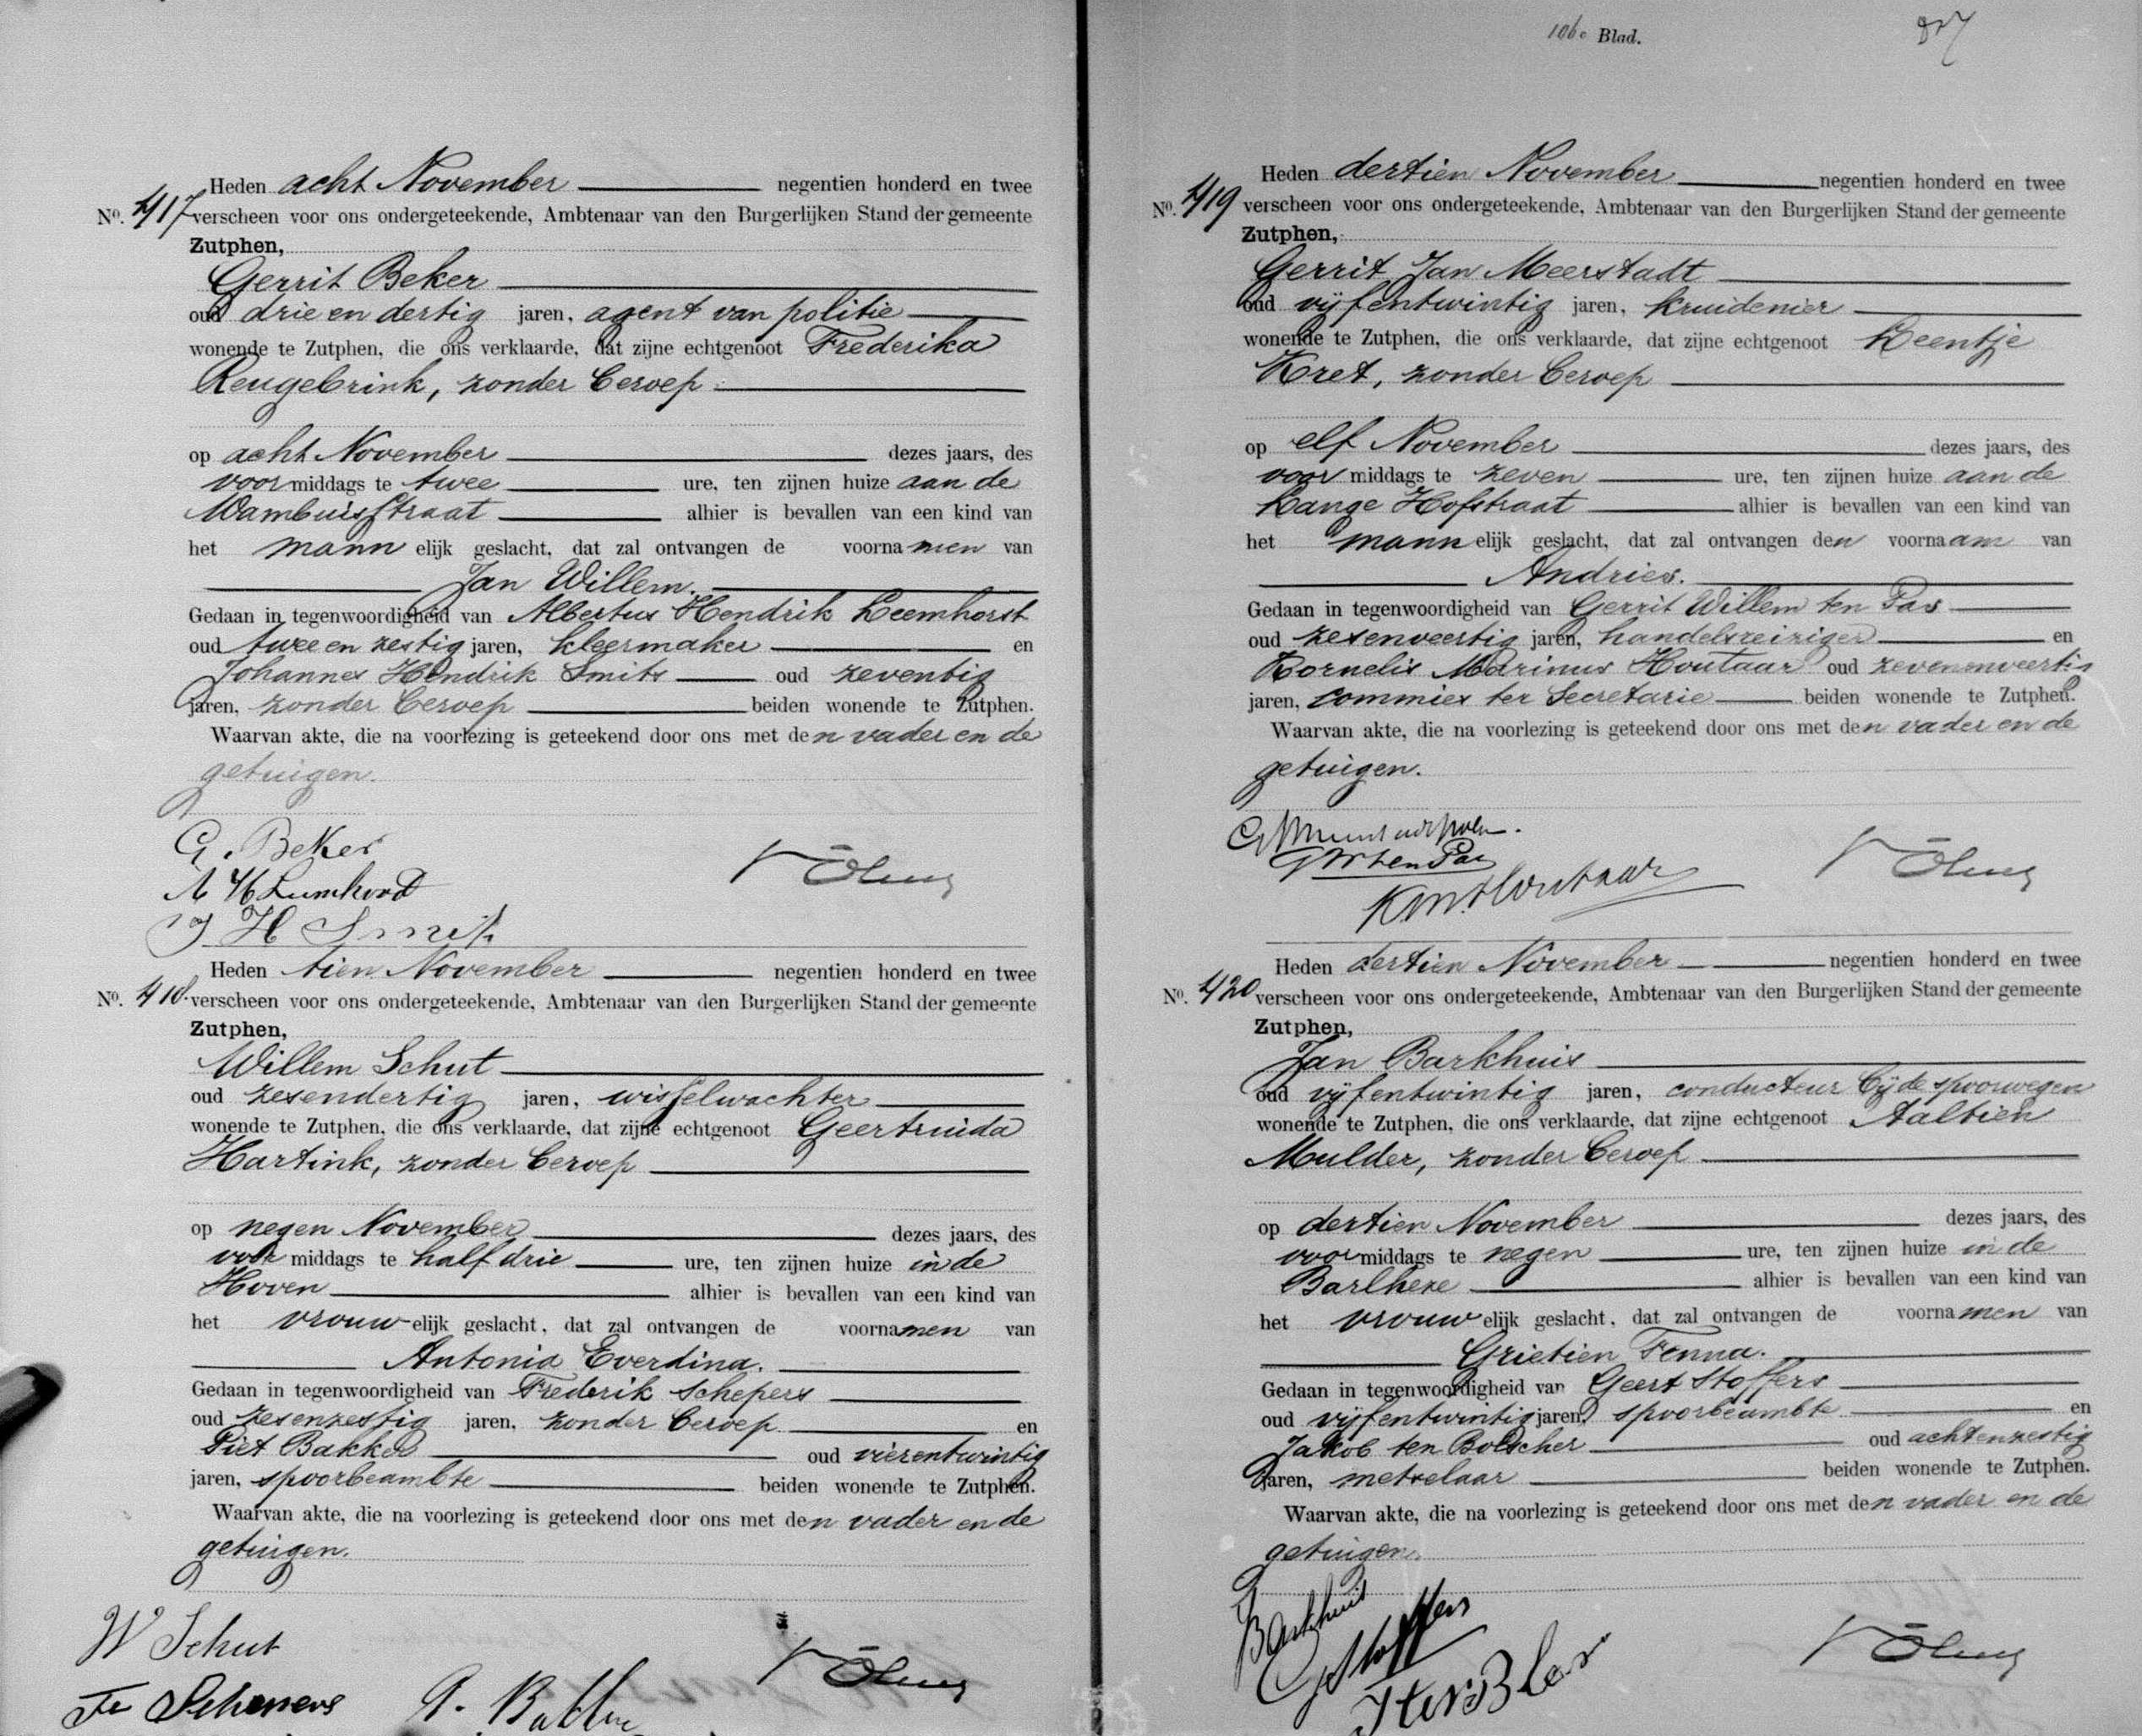 Heden acht November negentien honderd en twee
No. 417 verscheen voor ons ondergeteekende, Ambtenaar van den Burgerlijken Stand der gemeente
Zutphen,
Gerrit Beker
oud drie en dertig jaren, agent van politie
wonende te Zutphen, die ons verklaarde, dat zijne echtgenoot Frederika
Reugebrink, zonder beroep
op acht November dezes jaars, des
voormiddags te twee ure, ten zijnen huize aan de
Wambuisstraat alhier is bevallen van een kind van
het mannelijk geslacht, dat zal ontvangen de voornamen van
Jan Willem.
Gedaan in tegenwoordigheid van Albertus Hendrik Leemhorst
oud twee en zestig jaren, kleermaker en
Johannes Hendrik Smits oud zeventig
jaren, zonder beroep beiden wonende te Zutphen.
Waarvan akte, die na voorlezing is geteekend door ons met den vader en de
getuigen.
G. Beker
J H Smits
Heden tien November negentien honderd en twee
No. 418. verscheen voor ons ondergeteekende, Ambtenaar van den Burgerlijken Stand der gemeente
Zutphen,
Willem Schut
oud zesendertig jaren, wisselwachter
wonende te Zutphen, die ons verklaarde, dat zijne echtgenoot Geertruida
Hartink, zonder beroep
op negen November dezes jaars, des
voormiddags te half drie ure, ten zijnen huize in de
Hoven alhier is bevallen van een kind van
het vrouwelijk geslacht, dat zal ontvangen de voornamen van
Antonia Everdina.
Gedaan in tegenwoordigheid van Frederik Schepers
oud zesenzestig jaren, zonder beroep en
Piet Bakker oud vierentwintig
jaren, spoorbeambte beiden wonende te Zutphen.
Waarvan akte, die na voorlezing is geteekend door ons met den vader en de
getuigen.
W Schut
Fr Schepers P. Bakker
106e Blad. 827
Heden dertien November negentien honderd en twee
No. 419 verscheen voor ons ondergeteekende, Ambtenaar van den Burgerlijken Stand der gemeente
Zutphen,
Gerrit Jan Meerstadt
oud vijfentwintig jaren, kruidenier
wonende te Zutphen, die ons verklaarde, dat zijne echtgenoot Leentje
Kret, zonder beroep
op elf November dezes jaars, des
voormiddags te zeven ure, ten zijnen huize aan de
Lange Hofstraat alhier is bevallen van een kind van
het mannelijk geslacht, dat zal ontvangen den voornaam van
Andries.
Gedaan in tegenwoordigheid van Gerrit Willem ten Pas
oud zesenveertig jaren, handelsreiziger en
Kornelis Marinus Houtaar oud zevenenveertig
jaren, commies ter Secretarie beiden wonende te Zutphen.
Waarvan akte, die na voorlezing is geteekend door ons met den vader en de
getuigen.
GW ten Pas
KM Houtaar
Heden dertien November negentien honderd en twee
No. 420 verscheen voor ons ondergeteekende, Ambtenaar van den Burgerlijken Stand der gemeente
Zutphen,
Jan Barkhuis
oud vijfentwintig jaren, conducteur bij de spoorwegen
wonende te Zutphen, die ons verklaarde, dat zijne echtgenoot Aaltien
Mulder, zonder beroep
op dertien November dezes jaars, des
voormiddags te negen ure, ten zijnen huize in de
Barlheze alhier is bevallen van een kind van
het vrouwelijk geslacht, dat zal ontvangen de voornamen van
Grietien Fenna.
Gedaan in tegenwoordigheid van Geert Stoffers
oud vijfentwintig jaren, spoorbeambte en
Jakob ten Bolscher oud achtenzestig
jaren, metselaar beiden wonende te Zutphen.
Waarvan akte, die na voorlezing is geteekend door ons met den vader en de
getuigen.
J Barkhuis
G Stoffers